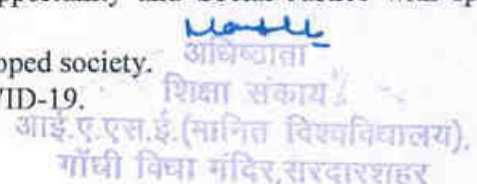 pportunity and Social Justice with sp
oped society.
VID-19.
अधिष्ठाता
शिक्षा संकाय
आई.ए.एस.ई.(मानित विश्वविद्यालय),
गाँधी विद्या मंदिर,सरदारशहर